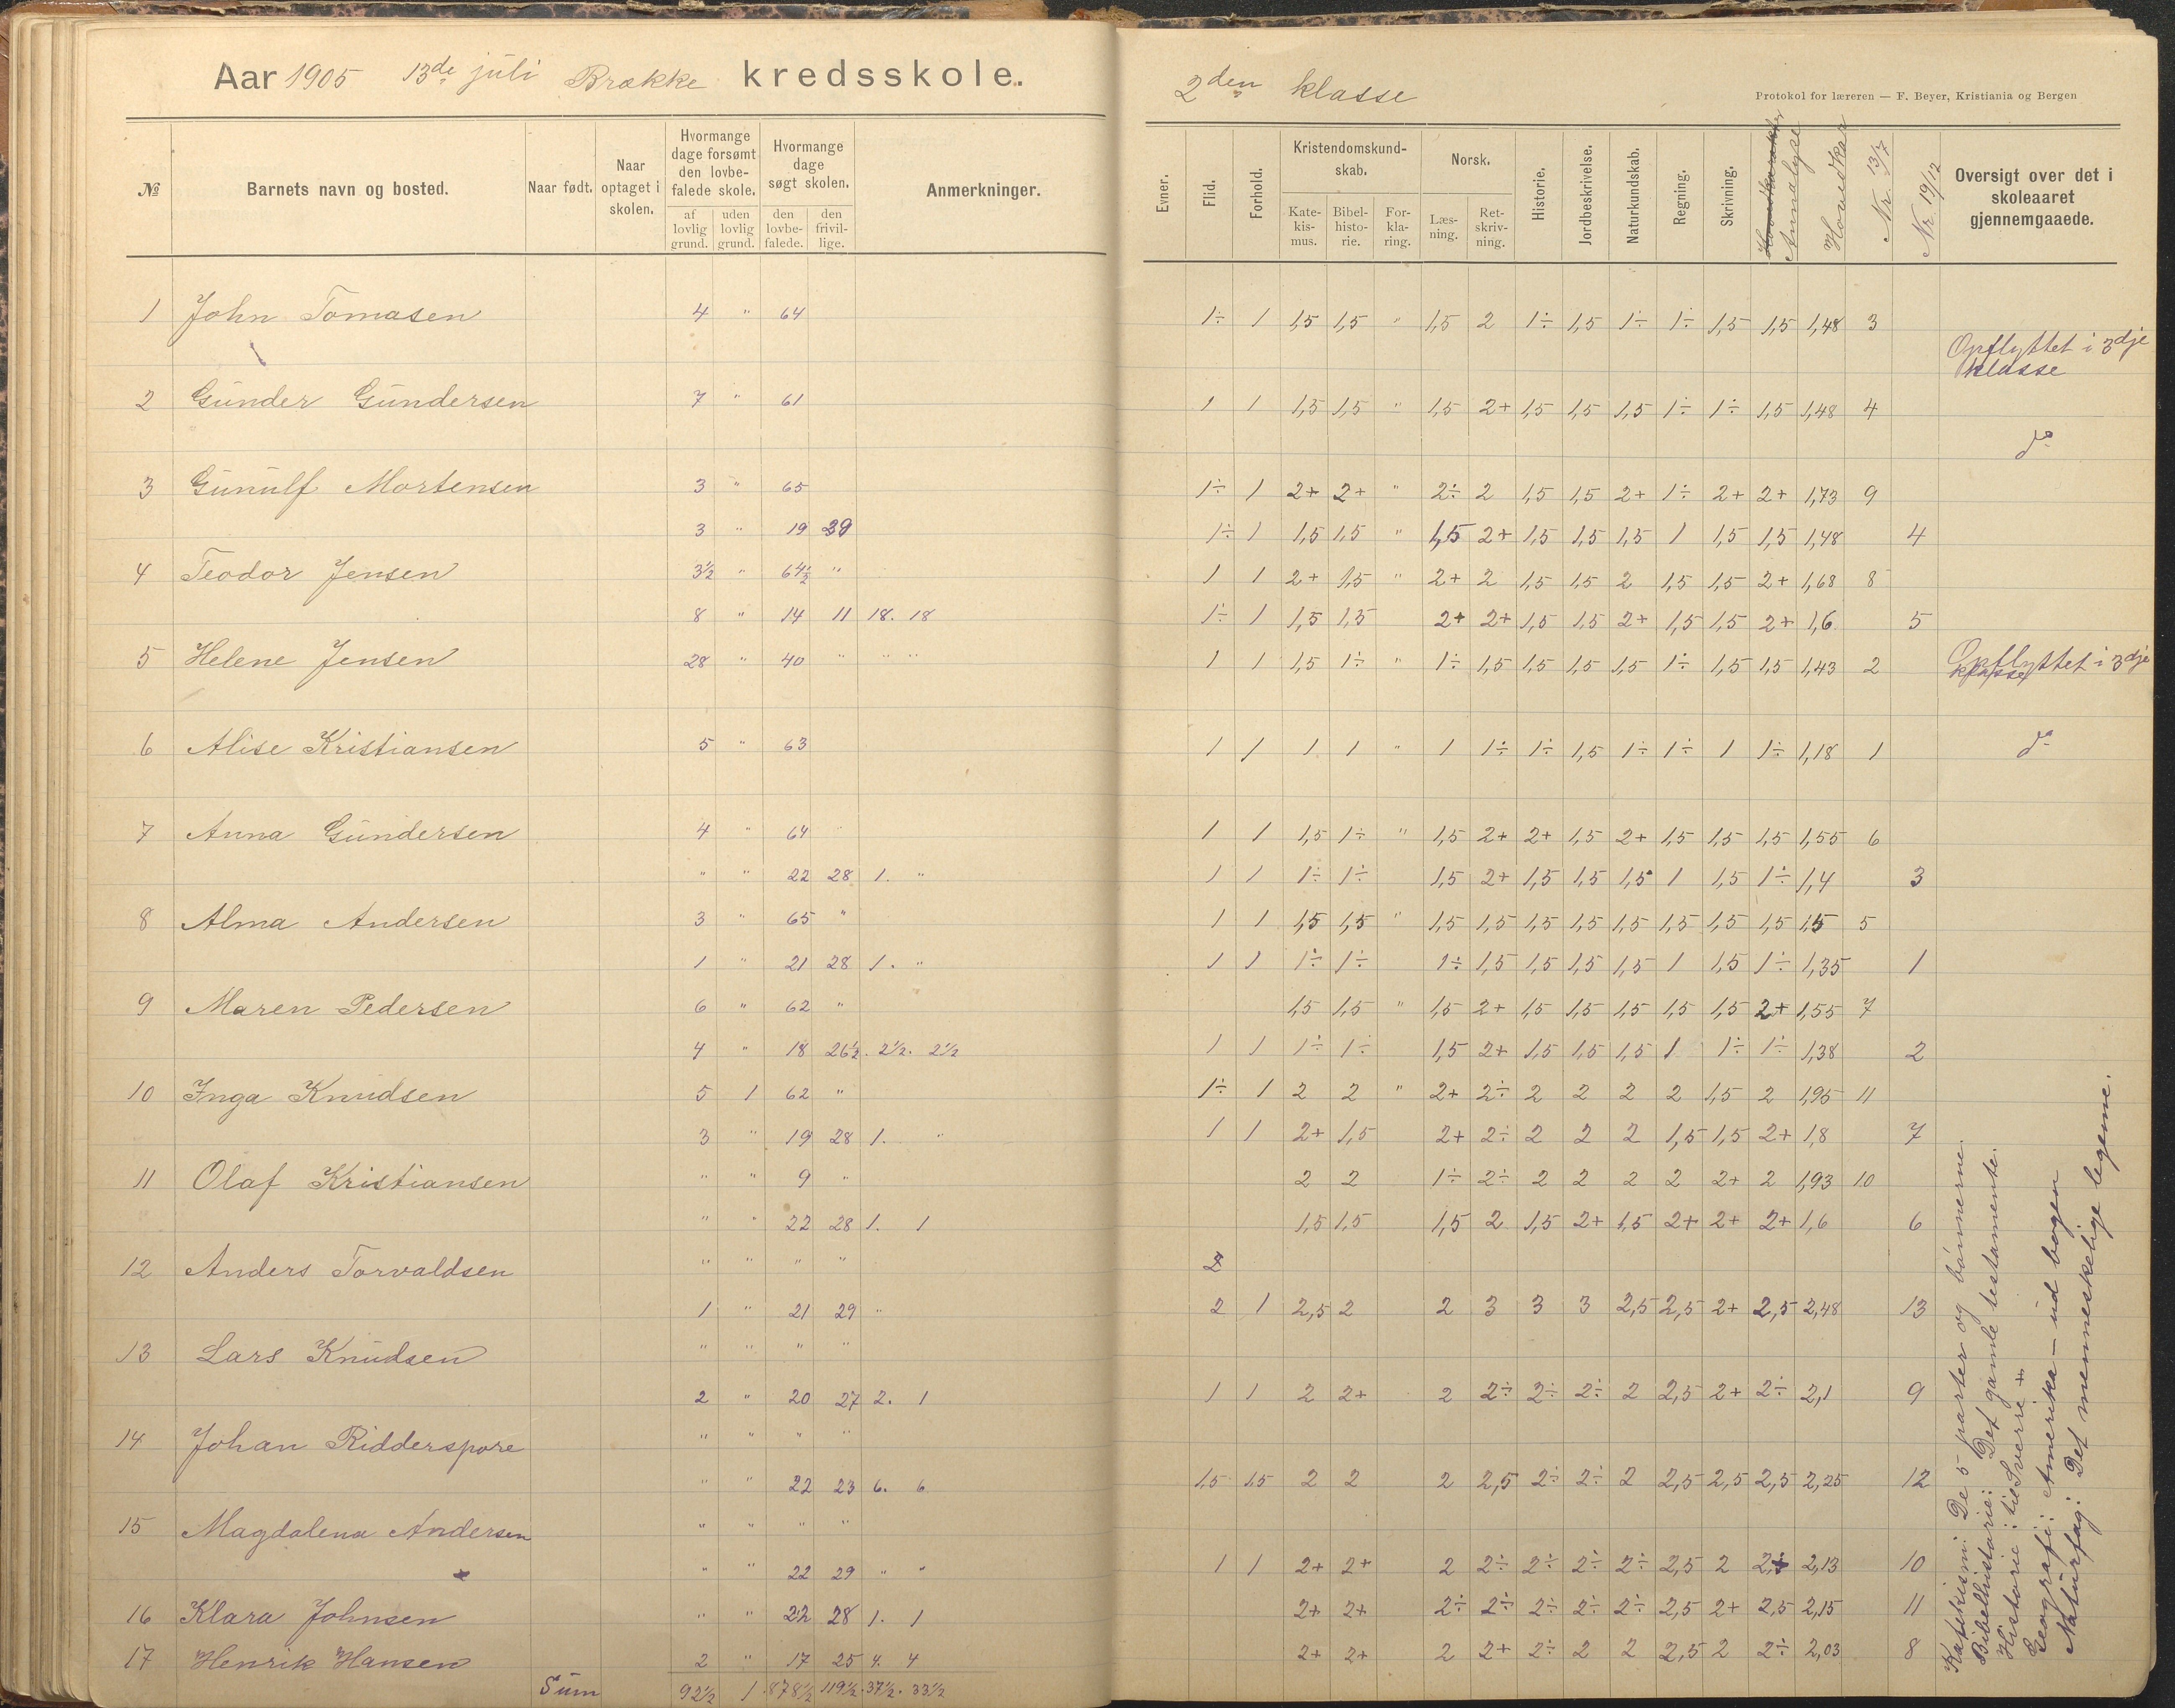 Aar 1905 13de juli Brække kredsskole.
2den klasse
Protokol for læreren — F. Beyer, Kristiania og Bergen
№ Barnets navn og bosted. Naar født. Naar optaget i skolen. Hvormange dage forsømt den lovbefalede skole. af lovlig grund. uden lovlig grund. Hvormange dage søgt skolen. den lovbefalede. den frivillige. Anmerkninger.
Evner. Flid. Forhold. Kristendomskundskab. Katekismus. Bibelhistorie. Forklaring. Norsk. Læsning. Retskrivning. Historie. Jordbeskrivelse. Naturkundskab. Regning. Skrivning. Hovedkarakter Annalyse Hovedkar Nr. 13/7 Nr. 19/12 Oversigt over det i skoleaaret gjennemgaaede.
1 John Tomasen 4 " 64 1÷ 1 1,5 1,5 " 1,5 2 1÷ 1,5 1÷ 1÷ 1,5 1,5 1,48 3
Opflyttet i 3dje
klasse
2 Gunder Gundersen 7 " 61 1 1 1,5 1,5 " 1,5 2+ 1,5 1,5 1,5 1÷ 1÷ 1,5 1,48 4
do
3 Gunulf Mortensen 3 " 65 1÷ 1 2+ 2+ " 2÷ 2 1,5 1,5 2+ 1÷ 2+ 2+ 1,73 9
3 " 19 29 1÷ 1 1,5 1,5 " 1,5 2+ 1,5 1,5 1,5 1 1,5 1,5 1,48 4
4 Teodor Jensen 3½ " 64½ " 1 1 2+ 1,5 " 2+ 2 1,5 1,5 2 1,5 1,5 2+ 1,68 8
8 " 14 11 18. 18 1÷ 1 1,5 1,5 2+ 2+ 1,5 1,5 2+ 1,5 1,5 2+ 1,6 5
5 Helene Jensen 28 " 40 " " " 1 1 1,5 1÷ " 1÷ 1,5 1,5 1,5 1,5 1÷ 1,5 1,5 1,43 2 Opflyttet i 3dje
klasse
6 Alise Kristiansen 5 " 63 1 1 1 1 " 1 1÷ 1÷ 1,5 1÷ 1÷ 1 1÷ 1,18 1 do
7 Anna Gundersen 4 " 64 " 1 1 1,5 1÷ " 1,5 2+ 2+ 1,5 2+ 1,5 1,5 1,5 1,55 6
" " 22 28 1. " 1 1 1÷ 1÷ 1,5 2+ 1,5 1,5 1,5 1 1,5 1÷ 1,4 3
8 Alma Andersen 3 " 65 " 1 1 1,5 1,5 " 1,5 1,5 1,5 1,5 1,5 1,5 1,5 1,5 1,5 5
1 " 21 28 1. " 1 1 1÷ 1÷ 1÷ 1,5 1,5 1,5 1,5 1 1,5 1÷ 1,35 1
9 Maren Pedersen 6 " 62 " 1,5 1,5 " 1,5 2+ 1,5 1,5 1,5 1,5 1,5 2+ 1,55 7
4 " 18 26½. 2½. 2½ 1 1 1÷ 1÷ 1,5 2+ 1,5 1,5 1,5 1 1÷ 1÷ 1,38 2
10 Inga Knudsen 5 1 62 " 1÷ 1 2 2 " 2+ 2÷ 2 2 2 2 1,5 2 1,95 11
3 " 19 28 1. " 1 1 2+ 1,5 2+ 2÷ 2 2 2 1,5 1,5 2+ 1,8 7
11 Olaf Kristiansen " " 9 " 2 2 1÷ 2÷ 2 2 2 2 2+ 2 1,93 10
" " 22 28 1. 1 1,5 1,5 1,5 2 1,5 2+ 1,5 2+ 2+ 2+ 1,6 6
12 Anders Torvaldsen " " " " 2
1 " 21 29 " 2 1 2,5 2 2 3 3 3 2,5 2,5 2+ 2,5 2,48 13
13 Lars Knudsen " " " "
2 " 20 27 2. 1 1 1 2 2+ 2 2÷ 2÷ 2÷ 2 2,5 2+ 2÷ 2,1 9
14 Johan Ridderspore " " " "
" " 22 23 6. 6 1,5 1,5 2 2 2 2,5 2÷ 2÷ 2 2,5 2,5 2,5 2,25 12
15 Magdalena Andersen " " " "
" " 22 29 " " 1 1 2+ 2+ 2 2÷ 2÷ 2÷ 2÷ 2,5 2 2÷ 2,13 10
16 Klara Johnsen " " 22 28 1. 1 2+ 2+ 2÷ 2÷ 2÷ 2÷ 2÷ 2,5 2+ 2,5 2,15 11
17 Henrik Hansen 2 " 17 25 4. 4 2+ 2+ 2 2+ 2÷ 2 2 2,5 2 2÷ 2,03 8
Sum 92½ 1 878½ 119½. 37½. 33½
Katekism: De 5 parter og bønnerne.
Bibelhistorie: Det gamle testamente.
Historie: til Sverre +
Geografi: Amerika – ud bogen
Naturfag: Det menneskelige legeme.